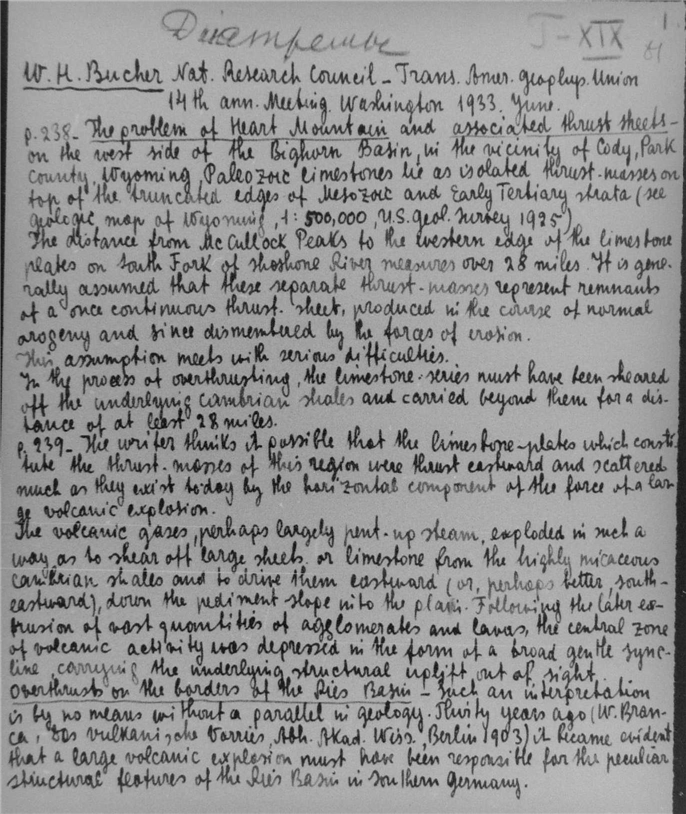 Диатремов
I-XIX 1
W. H. Bucher Nat. Research Council - Trans. Amer. geophys. Union
14th ann. Meeting. Washington 1933. June.
p. 238 - The problem of Heart Mountain and associated thrust sheets -
on the west side of the Bighorn Basin, in the vicinity of Cody, Park
county, Wyoming, Paleozoic limestones lie as isolated thrust-masses on
top of the truncated edges of Mesozoic and Early Tertiary strata (see
geologic map of Wyoming, 1:500,000, U.S. geol. Survey 1925)
The distance from Mc Cullock Peaks to the western edge of the limestone
plates on South Fork of Shoshone River measures over 28 miles. It is gene-
rally assumed that these separate thrust-masses represent remnants
of a once continuous thrust-sheet, produced in the course of normal
orogeny and since dismembered by the forces of erosion.
This assumption meets with serious difficulties.
In the process of overthrusting, the limestone-series must have been sheared
off the underlying Cambrian shales and carried beyond them for a dis-
tance of at least 28 miles.
p. 239 - The writer thinks it possible that the limestone-plates which consti-
tute the thrust-masses of this region were thrust eastward and scattered
much as they exist today by the horizontal component of the force of a lar-
ge volcanic explosion.
The volcanic gases, perhaps largely pent-up steam, exploded in such a
way as to shear off large sheets or limestone from the highly micaceous
Cambrian shales and to drive them eastward (or, perhaps better, south-
eastward), down the pediment slope into the plain. Following the later ex-
trusion of vast quantities of agglomerates and lavas, the central zone
of volcanic activity was depressed in the form of a broad gentle sync-
line, carrying the underlying structural uplift out of sight.
Overthrusts on the borders of the Ries Basin - Such an interpretation
is by no means without a parallel in geology. Thirty years ago (W. Bran-
ca, Das vulkanische Vorries, Abh. Akad. Wiss., Berlin 1903) it became evident
that a large volcanic explosion must have been responsible for the peculiar
structural features of the Ries Basin in Southern Germany.